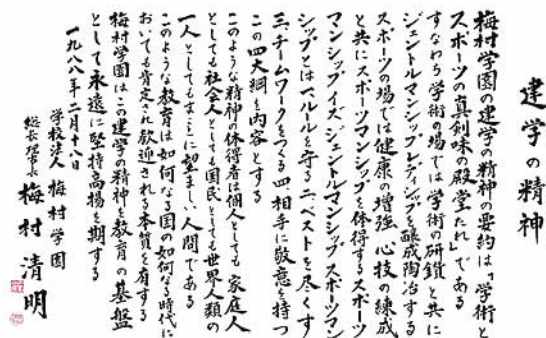 建学の精神
梅村学園の建学の精神の要約は「学術と
スポーツの真剣味の殿堂たれ」である
すなわち学術の場では学術の研鑽と共に
ジェントルマンシップレディシップを醸成陶冶する
スポーツの場では健康の増強 心技の練成
と共にスポーツマンシップを体得するスポーツ
マンシップイズジェントルマンシップスポーツマン
シップとは一、ルールを守る二、ベストを尽くす
三、チームワークをつくる四、相手に敬意を持つ
この四大綱を内容とする
このような精神の体得者は個人としても 家庭人
としても社会人としても国民としても世界人類の
一人としてもまことに望ましい人間である
このような教育は如何なる国の如何なる時代に
おいても肯定され歓迎される本質を有する
梅村学園はこの建学の精神を教育の基盤
として永遠に堅持高揚を期する
一九八八年二月十八日
学校法人 梅村学園
総長理事長 梅村清明